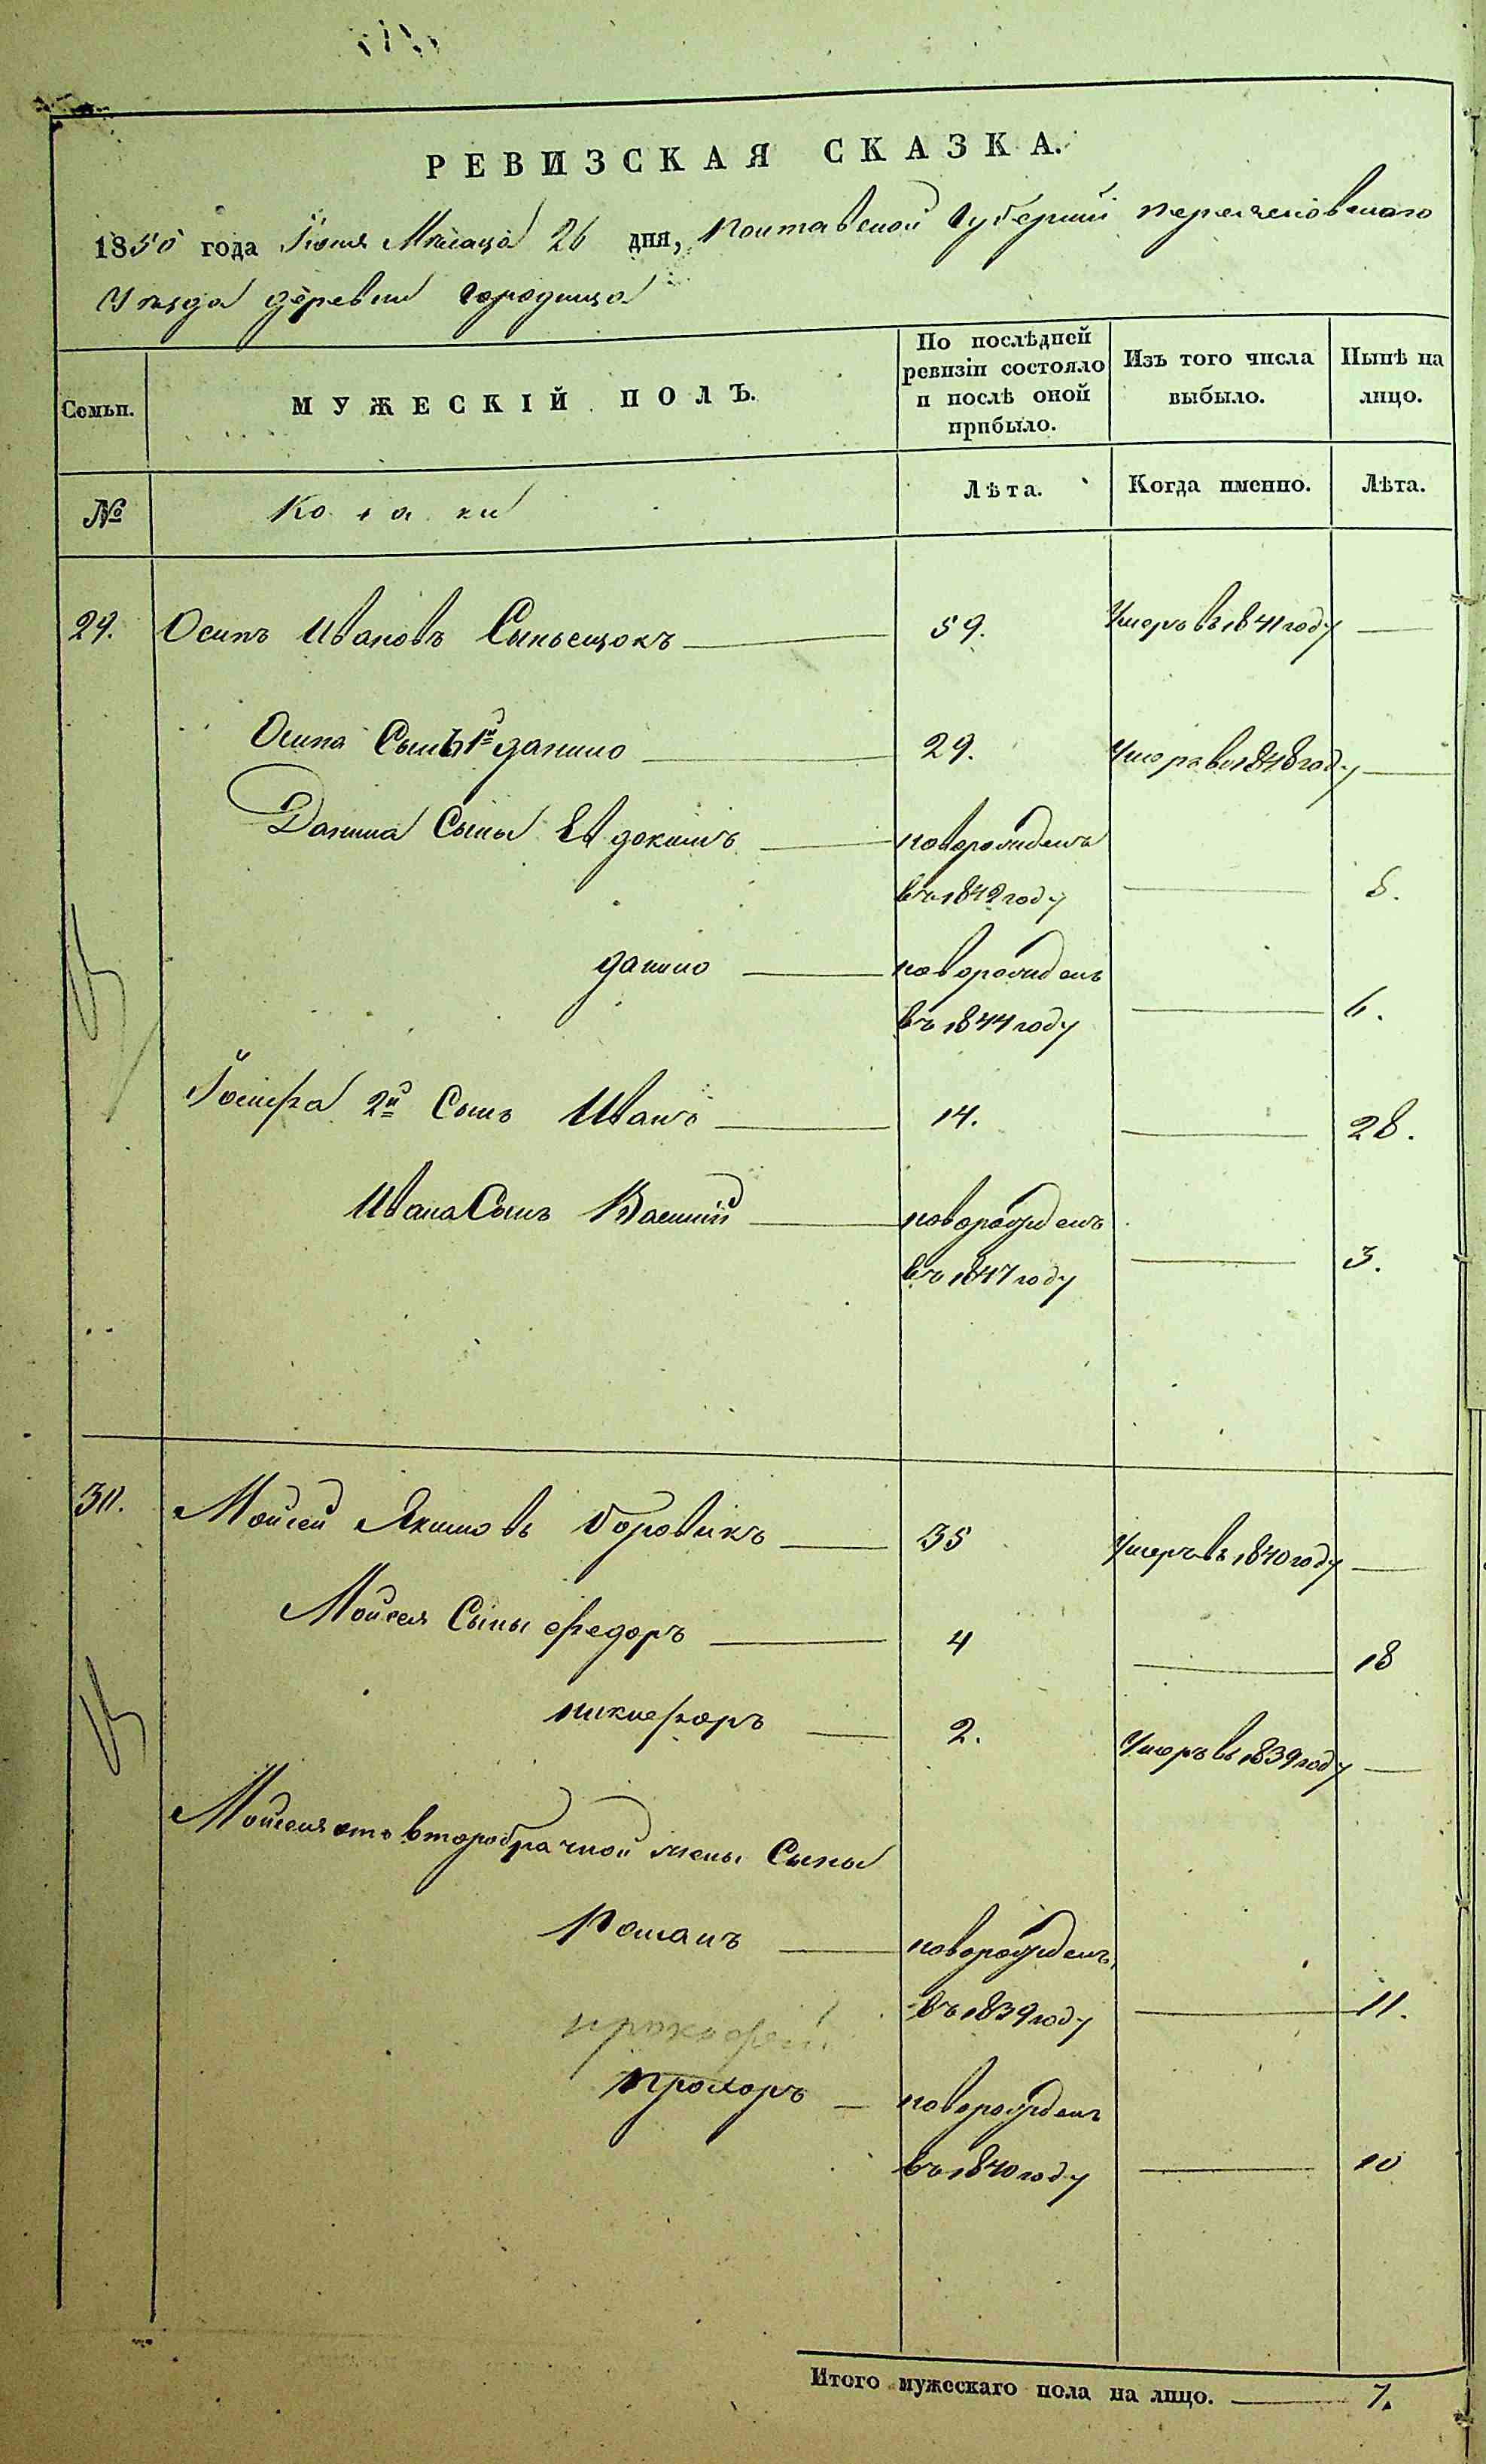 РЕВИЗСКАЯ СКАЗКА.
1850 года Іюня Мѣсяца 26 дня, Полтавской Губерніи Переяславскаго
Уѣзда деревни Городища
Семьи. МУЖЕСКІЙ ПОЛЪ. По послѣдней ревизіи состояло и послѣ оной прибыло. Изъ того числа выбыло. Нынѣ на лицо.
№ Козаки Лѣта. Когда именно. Лѣта.
29. Осипъ Ивановъ 59. Умеръ въ 1841 году
Осипа Сынъ 1й данило 29. Умеръ въ 1848 году
Данила Сыны Евдокимъ новорожденъ
въ 1842 году 8.
данило новорожденъ
въ 1844 году 6.
Іосифа 2й Сынъ Иванъ 14. 28.
Ивана Сынъ Василій новорожденъ
въ 1847 году 3.
30. Мойсей Якимовъ Боровикъ 35 Умеръ въ 1840 году
Мойсея Сыны Федоръ 4 18
никифоръ 2. Умеръ въ 1839 году
Мойсея отъ второбрачной жены Сыны
Романъ новорожденъ
въ 1839 году 11.
прокофей
прохоръ новорожденъ
въ 1840 году 10
Итого мужескаго пола на лицо. 7.